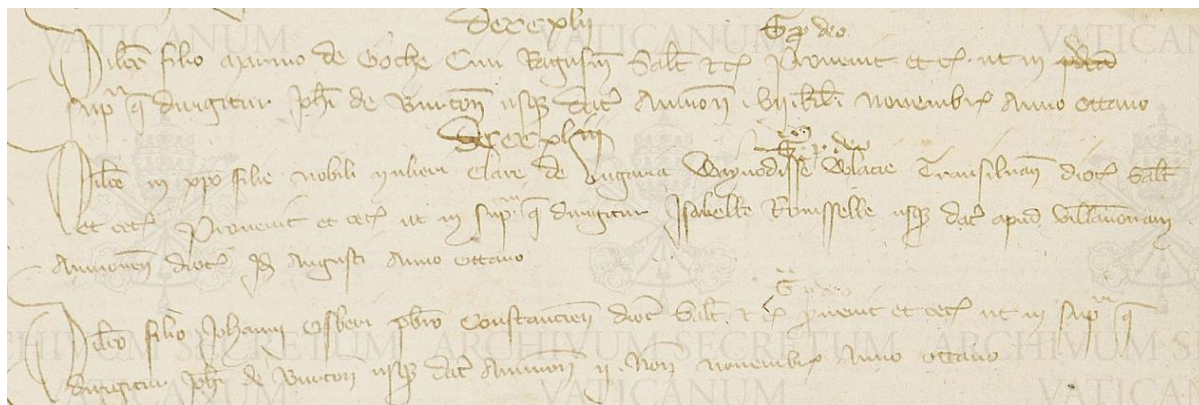 dcccxlii G p deo
Dilco filio Marino de Goche Civi Ragusin Salt etc Provenit et etc. ut in
sup q dirigitur Johi de Burton usq dat Avinion VII kl novembr Anno octavo
dcccxliii G. p. deo
Dilce in xpo filie nobili mulieri Clare de Ungaria Wayvodisse Volacie Transilvan dioc Salt
et etc Provenit et etc ut in sup q dirigitur Isabelle Rousselle usq dat apud Villamnovam
Avinionen dioc Id Augusti Anno octavo
G p deo
Dilco filio Johanni Osberi pbro Constancien dioc Salt et etc provenit et etc ut in sup q
dirigitur Johi de Burton usq dat Avinion II Non novembr Anno octavo
VATICANUM VATICANUM VATICANUM
ARCHIVUM SECRETUM ARCHIVUM SECRETUM ARCHIVUM